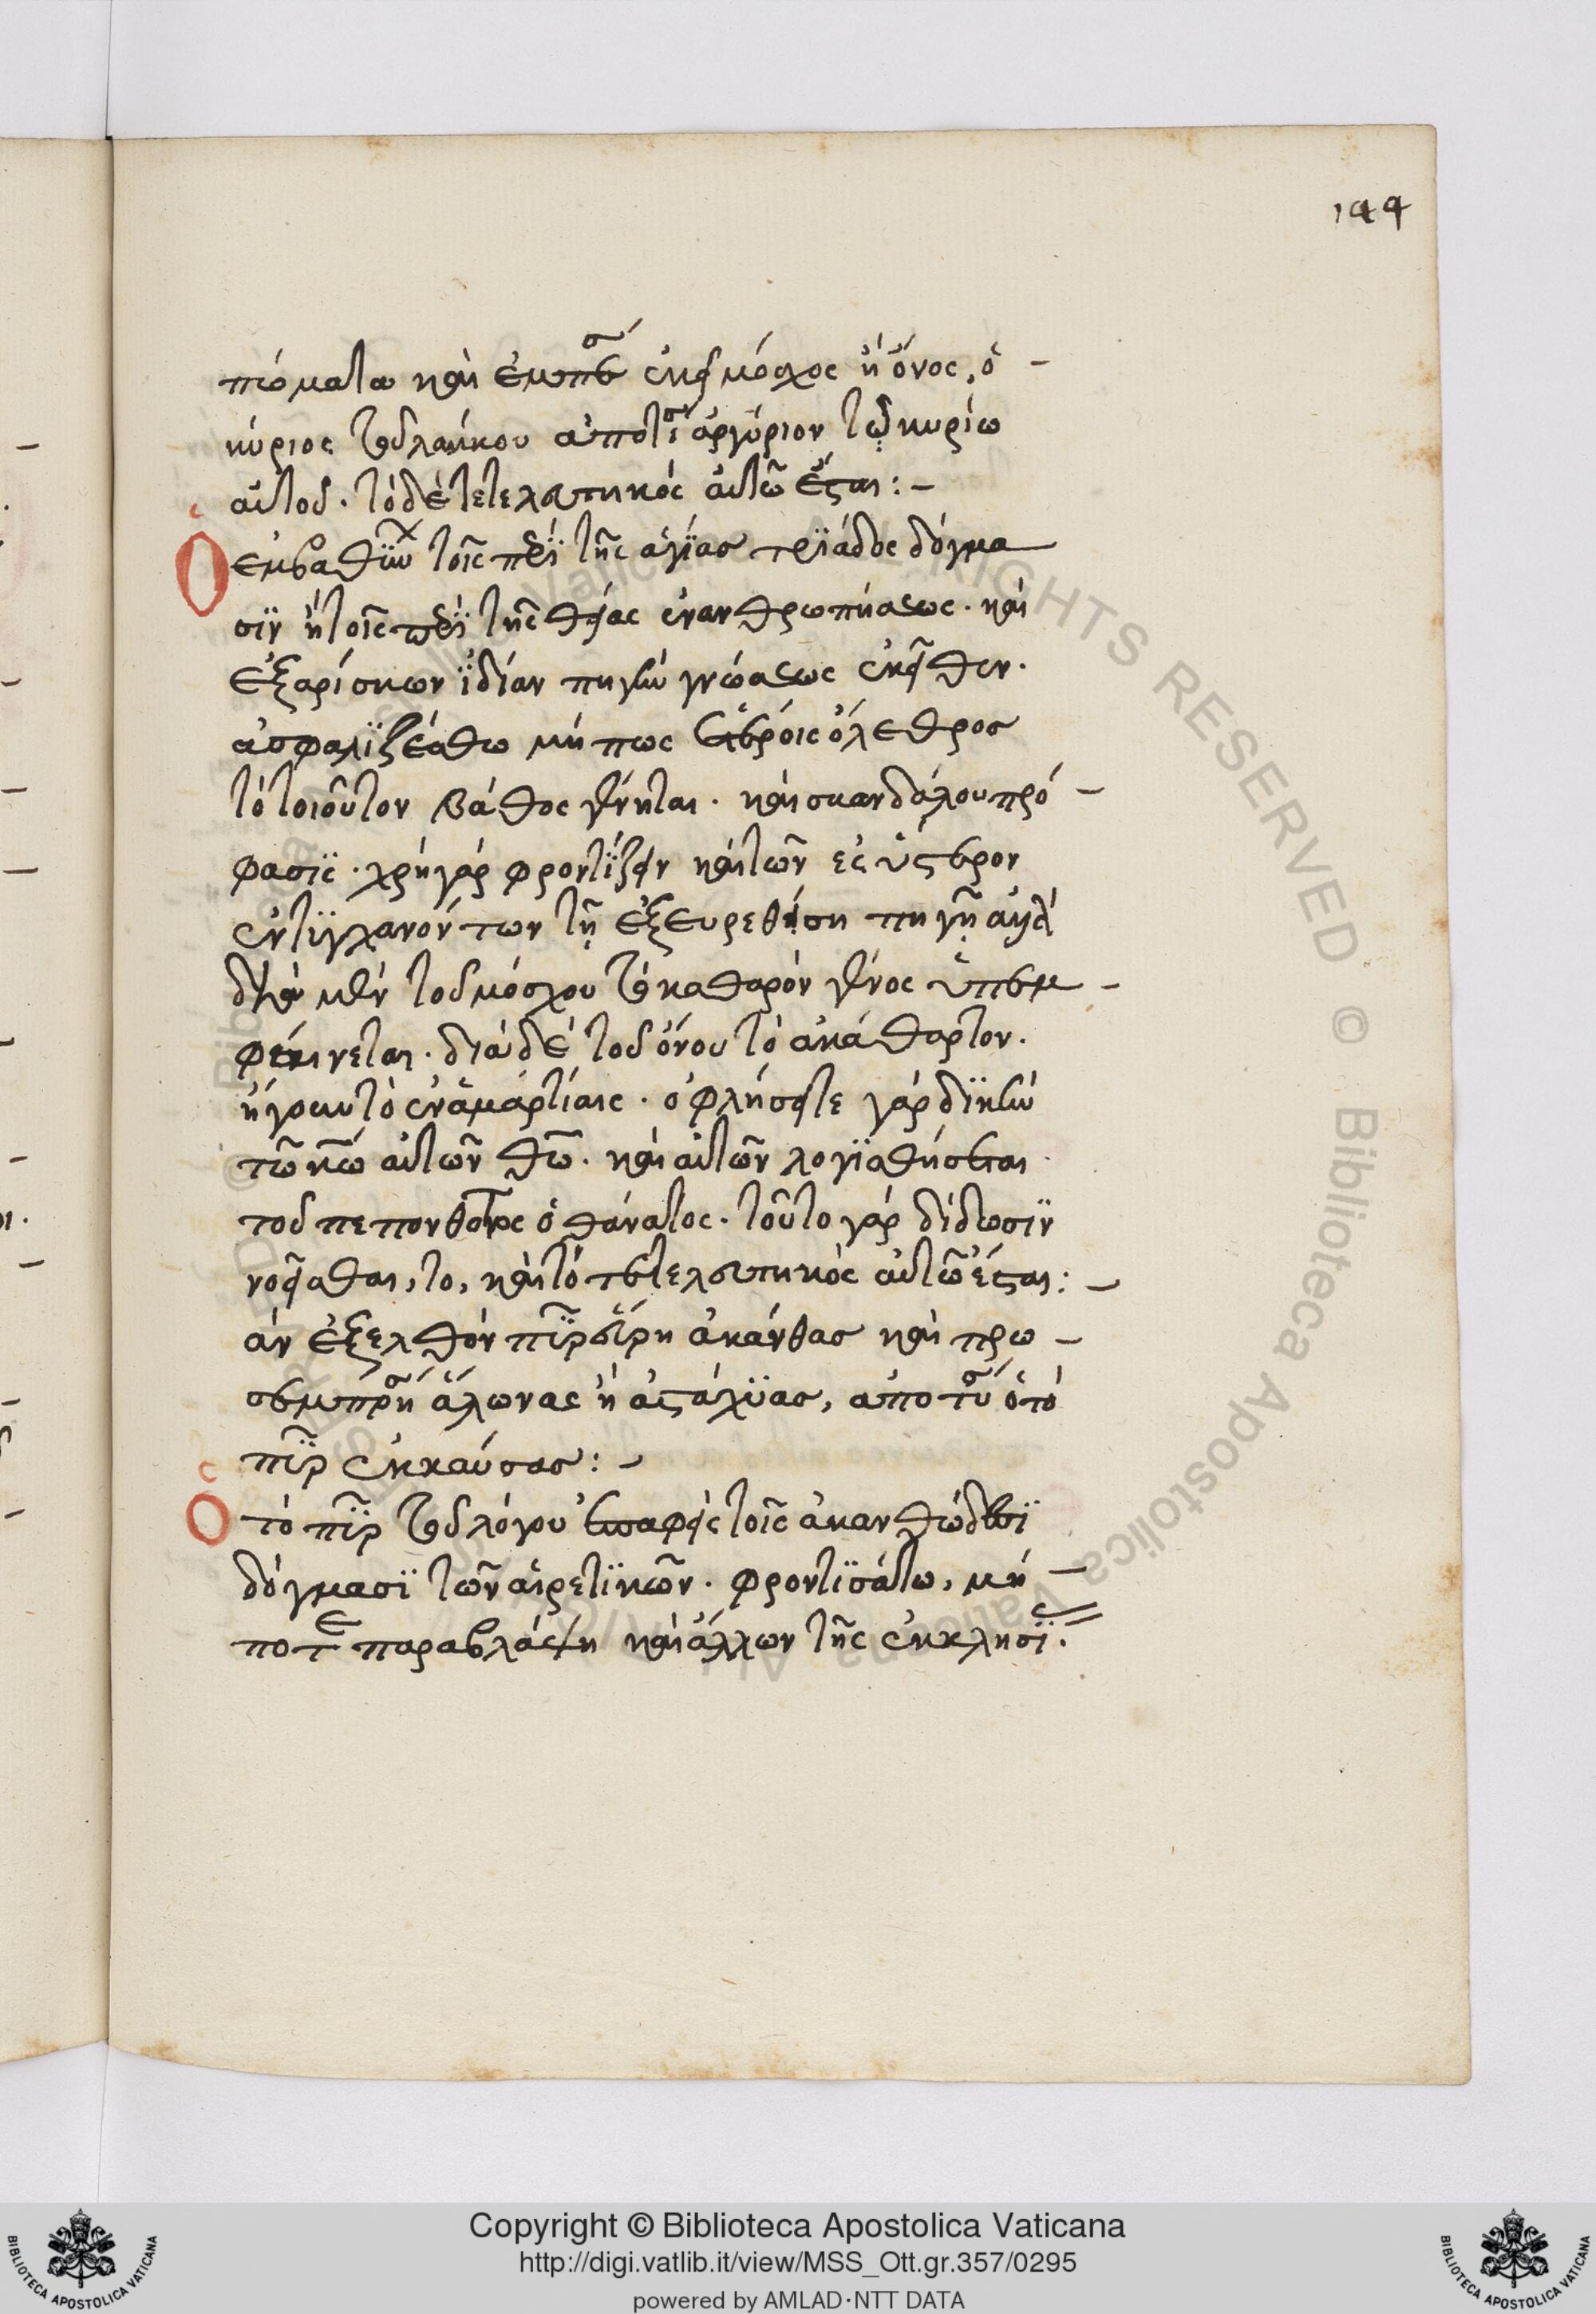 144
πώματα καὶ ἐμπέσῃ ἐκεῖ μόσχος ἢ ὄνος, ὁ
κύριος τοῦ λάκκου ἀποτίσει ἀργύριον τῷ κυρίω
αὐτοῦ. τὸ δὲ τετελευτηκὸς αὐτῶ ἔσται:
Ὁ ἐμβαθύνων τοῖς περὶ τῆς ἁγίας τριάδος δόγμα
σιν ἢ τοῖς περὶ τῆς θείας ἐνανθρωπήσεως. καὶ
ἰδίαν πηγὴν γνώσεως ἐκεῖθεν.
ἀσφαλιζέσθω μή πως ἑτέροις ὄλεθρος
τὸ τοιοῦτον βάθος γένηται. καὶ σκανδάλου πρό
φασις. χρὴ γὰρ φροντίζειν καὶ τῶν ἐς ὕστερον
ἐντυγχανόντων τῇ ἐξευρεθείση πηγῇ
διὰ μὲν τοῦ μόσχου τὸ καθαρὸν γένος
φαίνεται. διὰ δὲ τοῦ ὄνου τὸ ἀκάθαρτον.
ἤγουν τὸ ἐν ἁμαρτίαις. ὀφλήσετε γὰρ δίκην
τῶ κῶ αὐτῶν θῶ. καὶ αὐτῶν λογισθήσεται
τοῦ πεπονθότος ὁ θάνατος. τοῦτο γὰρ δίδωσιν
νοεῖσθαι, το, καὶ τὸ τετελευτηκὸς αὐτῶ ἔσται:
ἂν ἐξελθὸν πῦρ εὕρη ἀκάνθας καὶ προ
σεμπρήσῃ ἅλωνας ἢ ἀστάχυας, ἀποτίσει ὁ τὸ
πῦρ ἐκκαύσας:
Ὁ τὸ πῦρ τοῦ λόγου ἐπαφεὶς τοῖς ἀκανθώδεσι
δόγμασι τῶν αἱρετικῶν. φροντισάτω, μή
ποτε παραβλάψη καὶ ἄλλων τῆς ἐκκλησί.
Copyright © Biblioteca Apostolica Vaticana
http://digi.vatlib.it/view/MSS_Ott.gr.357/0295
powered by AMLAD·NTT DATA